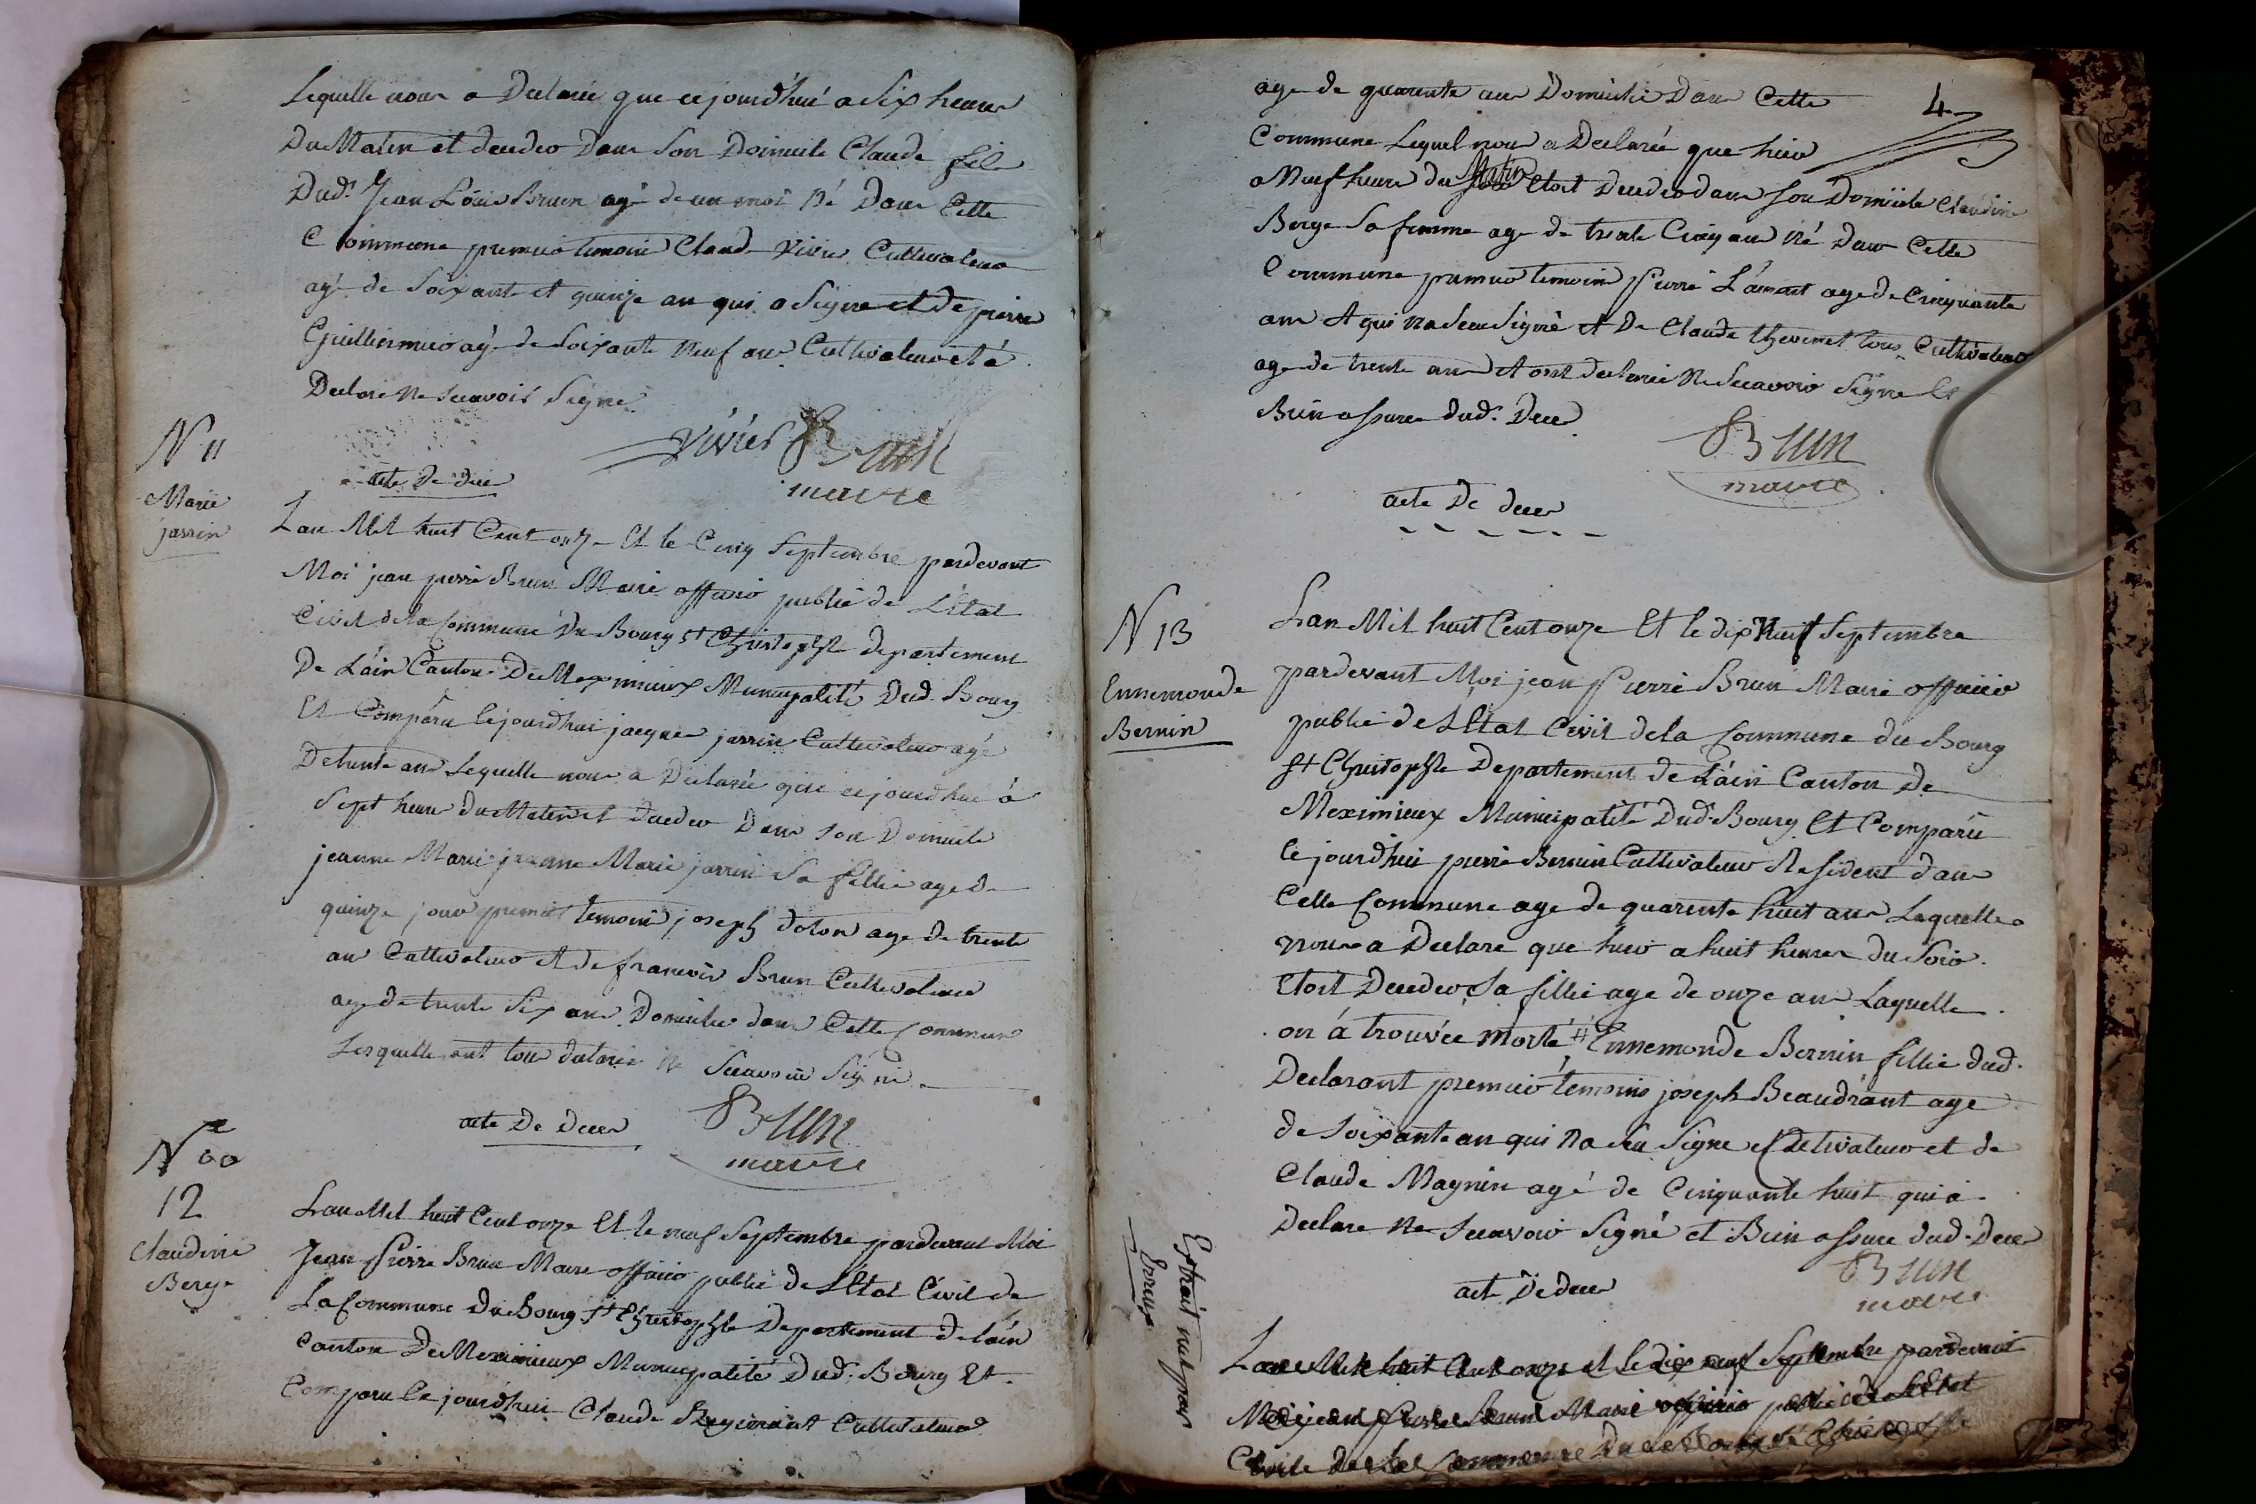 Lequelle nous a Declaré que cejourd'hui a Six heures
Du Matin et decedeo Dans Son Domicile Claude fils
Dud. Jean Louis Brun agé de un moi Né Dans Cette
Commune premier temoin Claude Vivier Cultivateur
agé de Soixante et quinze an qui a Signé et de pierre
agé de Soixante Neuf ans Cultivateur et à
Declaré Ne Scavoir Signe
Vivier Brun
maire
N 11
Marie
jarrin
acte De dece
Lan Mil huit Cent onze Et le Cinq Septembre pardevant
Moi jean pierre Brun Maire officier public de L'Etat
Civil de la Commune Du Bourg St Christophle departement
De L'ain Canton De Meximieux Municipalité Dud. Bourg
Et Comparu Cejourdhui jacques jarrin Cultivateur agé
De trente ans Lequelle nous a Declarée que cejourdhui à
Sept heure du Matin et Decedeo Dans son Domicile
jeanne Marie jeanne Marie jarrin Sa fillie age de
quinze jour premier temoin joseph dolon age de trente
an Cultivateur Et de francois Brun Cultivateur
age de trente Six ans Domicilie dans Cette Commune
Lesquelle ont tous declarer Ne Scavoir Signe
Brun
maire
N 00
12
Claudine
Berge
acte De Deces
Lan Mil huit Cent onze Et le neuf Septembre pardevant Moi
Jean Pierre Brun Maire officier public de L'Etat Civil de
La Commune Du Bourg St Christophle Departement de L'ain
Canton De Meximieux Municipalité Dud. Bourg Et
Comparu Ce jourd'hui Claude Cultivateur
4
age de quarante ans Domicilie Dans Cette
Commune Lequel nou a Declarée que hier
a Neuf heure du Matin Etoit Decedeo dans Son Domicile Claudine
Berge Sa femme age de trente Cinq ans Né Dans Cette
Commune premier temoin Pierre L'amant age de Cinquante
ans Et qui na Sceu Signé Et De Claude thevenet tous Cultivateur
age de trente ans et ont declaré Ne Scavoir Signe Et
Bien assuree dud. Dece
Brun
maire
acte De deces
N 13
Ennemonde
Bernin
Lan Mil huit Cent onze Et le dix Neuf Septembre
pardevant Moi jean Pierre Brun Maire officier
public de LEtat Civil de la Commune du Bourg
St Christophle Departement de L'ain Canton De
Meximieux Municipalité Dud. Bourg Et Comparu
Ce jourdhui pierre Bernin Cultivateur Resident dans
Cette Commune age de quarente huit ans Laquelle
nous a Declare que hier a huit heures du Soir
Etoit Decedeo Sa fillie age de onze ans Laquelle
on à trouvée Morte # Ennemonde Bernin fillie dud.
Declarant premier temoins joseph Beaudrant age
de Soixante an qui Na Su Signe Cultivateur et de
Claude Magnin agé de Cinquante huit qui à
Declare Ne Scavoir Signé et Bien assure dud. Dece
Brun
maire
acte De dece
Extrait nul par
Erreur
Lan Mil huit Cent onze et le dix neuf Septembre pardevant
Moi jean Pierre Brun Maire officier public de LEtat
Civile de la Commune Du Bourg St Christophle